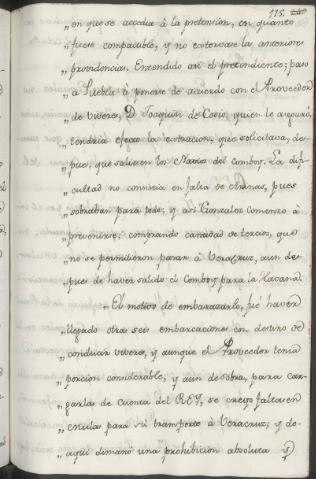 118.
„en que se accedia à la pretension, en quanto
„fuese compatible, y no estorvase las anteriores
„providencias. Entendido asi el pretendiente; pasò
„à Puebla à ponerse de acuerdo con el Proveedor
„de viveres, Dn. Joaquin de Cosio, quien le asegurò,
„tendria efecto la extraccion, que solicitava, des-
„pues, que saliesen los Navios del comboy. La difi-
„cultad no consistia en falta de Arinas, pues
„sobraban para todo; y asi Gonzalez comenzò à
„prevenirse, comprando cantidad de tercios, que
„no se permitieron pasar à Veracruz, aun des-
„pues de haver salido el Comboy para la Havana.
„El motivo de embarazarlo, fuè haver
„llegado otras seis embarcaciones con destino de
„conducir viveres, y aunque el Proveedor tenia
„porcion considerable, y aun de sobra, para car-
„garlas de cuenta del REY, se creyò faltasen
„mulas para su transporte à Veracruz; y de-
„aqui dimanò una prohibicion absoluta